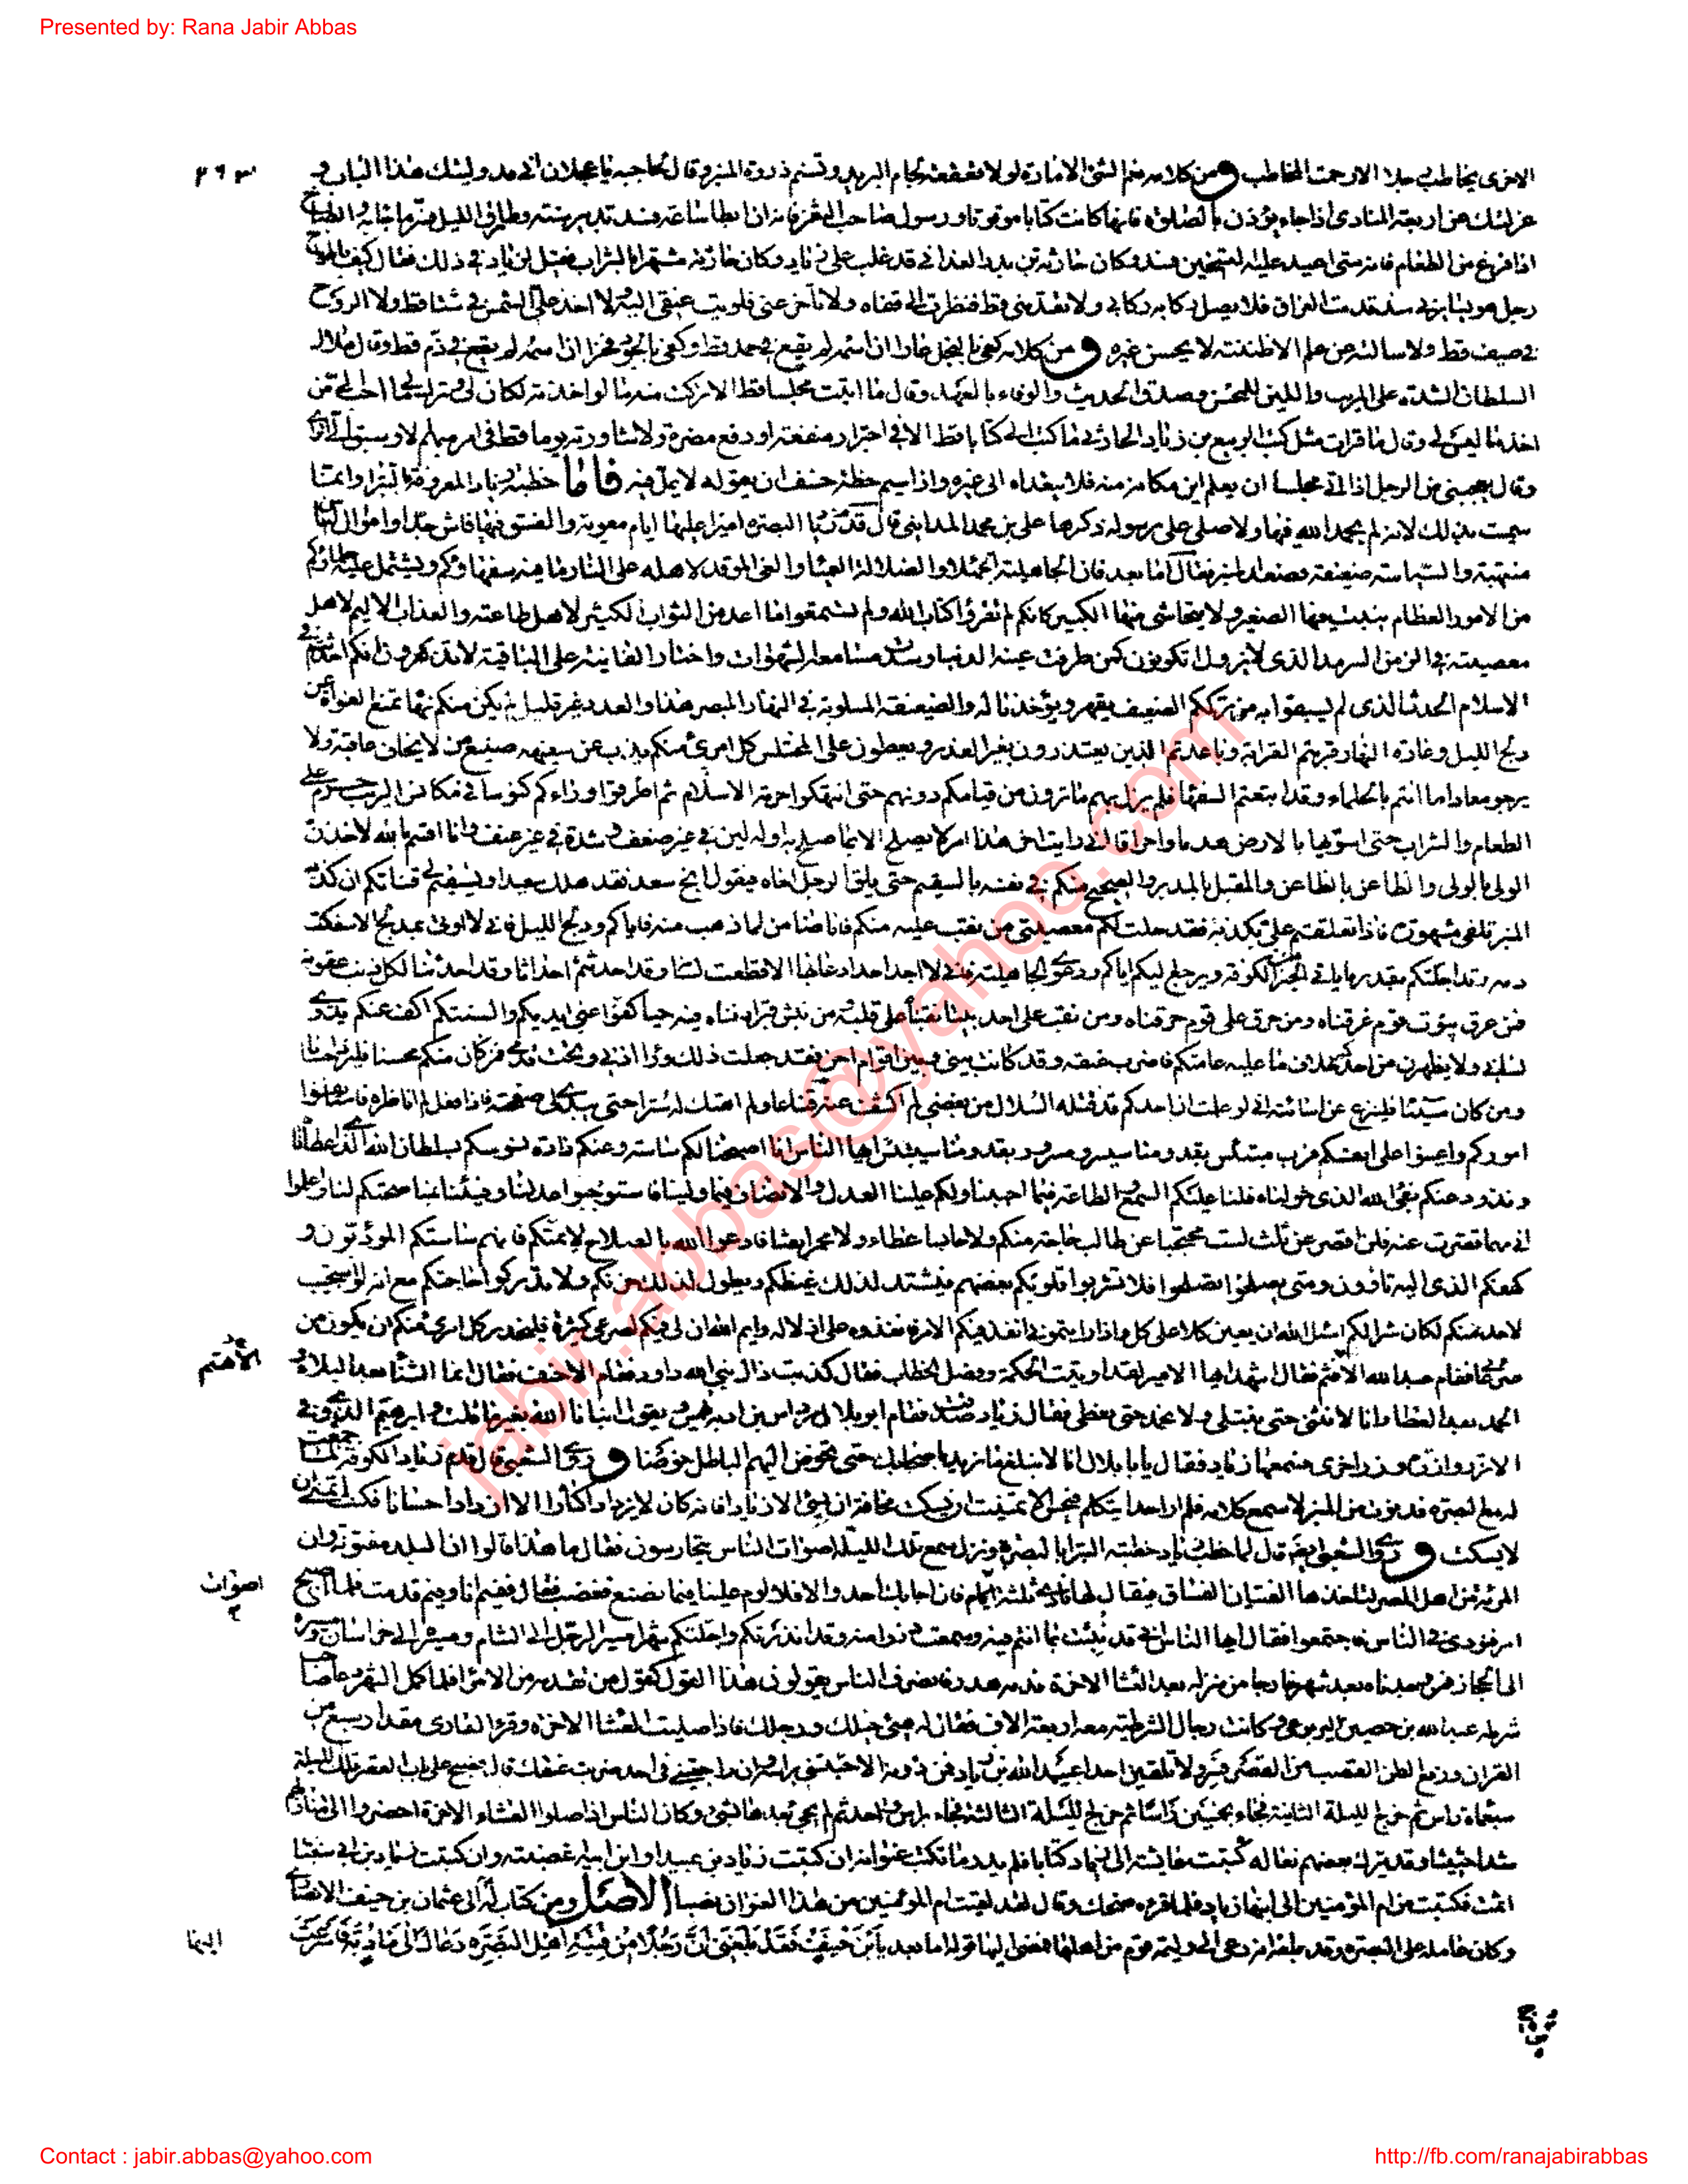 Presented by: Rana Jabir Abbas
٣٦٣
الاخرى يخاطب رجلا الا رحمت المخاطب ومن كلامه نعم الشئ الامارة لولا قعقعة لجام البريد وتسنم ذروة المنبر وقال لحاجبه يا عجلان انى قد وليتك هذا الباب و
عزلتك عن اربعة المنادى اذا جاء يؤذن بالصلوة فانها كانت كتابا موقوتا ورسول صاحب الثغر فانه ان ابطا ساعة فسد تدبير سنة وطارق الليل فشر ما جاء به والطباخ
اذا فرغ من الطعام فانه متى اعيد عليه التسخين فسد وكان حارثة بن بدر الغدانى قد غلب على زياد وكان حارثة مشتهرا بالشراب فقيل لزياد فى ذلك فقال كيف
رجل هو يسايرنى منذ قدمت العراق فلا يصل ركابه ركابى ولا تقدمنى قط فنظرت الى قفاه ولا تاخر عنى فلويت عنقى اليه ولا اخذ على الشمس فى شتاء قط ولا الروح
فى صيف قط ولا سالته عن علم الا ظننته لا يحسن غيره ومن كلامه كفى بالبخل عارا ان اسمه لم يقع فى حمد قط وكفى بالجود فخرا ان اسمه لم يقع فى ذم قط وقال ملاك
السلطان الشدة على المريب واللين للمحسن وصدق الحديث والوفاء بالعهد وقال ما اتيت مجلسا قط الا تركت منه ما لو اخذته لكان لى وترك ما لى احب الى من
اخذ ما ليس لى وقال ما قرات مثل كتب الربيع بن زياد الحارثى ما كتب الى كتابا قط الا فى اجترار منفعة او دفع مضرة ولا شاورته يوما قط فى امر مبهم الا وسبق الى الراى
وقال يعجبنى من الرجل اذا اتى مجلسا ان يعلم اين مكانه منه فلا يتعداه الى غيره واذا سيم خطة خسف ان يقول لا بملء فيه فاما خطبة زياد المعروفة بالبتراء وانما
سميت بذلك لانه لم يحمد الله فيها ولا صلى على رسوله ذكرها على بن محمد المداينى قال قدم زياد البصرة اميرا عليها ايام معوية والفسق فيها فاش جدا واموال الناس
منتهبة والسياسة ضعيفة فصعد المنبر فقال اما بعد فان الجاهلية الجهلاء والضلالة العمياء والغى الموقد لاهله على النار ما فيه سفهاؤكم ويشتمل عليه حلماؤكم
من الامور العظام ينبت فيها الصغير ولا يتحاشى منها الكبير كانكم لم تقرؤا كتاب الله ولم تستمعوا ما اعد من الثواب الكثير لاهل طاعته والعذاب الاليم لاهل
معصيته فى الزمن السرمد الذى لا يزول اتكونون كمن طرفت عينه الدنيا وسدت مسامعه الشهوات واختار الفانية على الباقية لا تذكرون انكم احدثتم فى
الاسلام الحدث الذى لم تسبقوا به من ترككم الضعيف يقهر ويؤخذ ماله والضعيفة المسلوبة فى النهار المبصر هذا والعدد غير قليل الم يكن منكم نهاة تمنع الغواة عن
دلج الليل وغارة النهار قربتم القرابة وباعدتم الدين يعتذرون بغير العذر ويعطون على المختلس كل امرئ منكم يذب عن سفيهه صنيع من لا يخاف عاقبة ولا
يرجو معادا ما انتم بالحلماء وقد اتبعتم السفهاء فلم يزل بهم ما ترون من قيامكم دونهم حتى انتهكوا حرمة الاسلام ثم اطرقوا وراءكم كنوسا فى مكانس الريب حرام على
الطعام والشراب حتى اسويها بالارض هدما واحراقا انى رايت اخر هذا الامر لا يصلح الا بما صلح به اوله لين فى غير ضعف وشدة فى غير عنف وانا اقسم بالله لاخذن
الولى بالولى والظاعن بالظاعن والمقبل بالمدبر والصحيح منكم فى نفسه بالسقيم حتى يلقى الرجل اخاه فيقول انج سعد فقد هلك سعيد او تستقيم لى قناتكم ان كذبة
المنبر تلفى مشهورة فاذا تعلقتم على بكذبة فقد حلت لكم معصيتى من نقب عليه منكم فانا ضامن لما ذهب منه فاياكم ودلج الليل فانى لا اوتى بمدلج الا سفكت
دمه وقد اجلتكم بقدر ما ياتى الخبر الكوفة ويرجع اليكم اياكم ودعوى الجاهلية فانى لا اجد احدا دعا بها الا قطعت لسانه وقد احدثتم احداثا وقد احدثنا لكل ذنب عقوبة
فمن غرق بيوت قوم غرقناه ومن حرق على قوم حرقناه ومن نقب على احد بيتا نقبنا على قلبه ومن نبش قبرا دفناه فيه حيا كفوا عنى ايديكم والسنتكم اكف عنكم يدى و
لسانى ولا يظهرن من احدكم خلاف ما عليه عامتكم فاضرب عنقه وقد كانت بينى وبين اقوام احن فقد جعلت ذلك وراء اذنى وتحت قدمى فمن كان منكم محسنا فليزدد احسانا
ومن كان مسيئا فلينزع عن اسائته انى لو علمت ان احدكم قد قتله السلال من بغضى لم اكشف عنه قناعا ولم اهتك له سترا حتى يبدى لى صفحته فاذا فعل لم اناظره فاستانفوا
اموركم واعينوا على انفسكم فرب مبتئس بقدومنا سيسر ومسرور بقدومنا سيبتئس ايها الناس انا اصبحنا لكم ساسة وعنكم ذادة نسوسكم بسلطان الله الذى اعطانا
ونذود عنكم بفئ الله الذى خولناه فلنا عليكم السمع والطاعة فيما احببنا ولكم علينا العدل والانصاف فيما ولينا فاستوجبوا عدلنا وفيئنا بمناصحتكم لنا واعلموا
انى مهما قصرت عنه فلن اقصر عن ثلث لست محتجبا عن طالب حاجة منكم ولا حابسا عطاء ولا مجمرا بعثا فادعوا الله بالصلاح لائمتكم فانهم ساستكم المؤدبون و
كهفكم الذى اليه تاوون ومتى يصلحوا تصلحوا فلا تشربوا قلوبكم بغضهم فيشتد لذلك غيظكم ويطول لذلك حزنكم ولا تدركوا حاجتكم مع انه لو استجيب
لاحد منكم لكان شرا لكم اسئل الله ان يعين كلا على كل واذا رايتمونى انفذ فيكم الامر فانفذوه على اذلاله وايم الله ان لى فيكم لصرعى كثيرة فليحذر كل امرئ منكم ان يكون من
صرعاى فقام عبد الله الاهتم فقال اشهد ايها الامير لقد اوتيت الحكمة وفصل الخطاب فقال كذبت ذاك نبى الله داود فقام الاحنف فقال انما الثناء بعد البلاء و
الاهتم
الحمد بعد العطاء وانا لا نثنى حتى نبتلى ولا نحمد حتى نعطى فقال زياد صدقت فقام ابو بلال مرداس بن ادية يهمس ويقول انبانا الله بغير ما قلت وابرهيم الذى وفى
الا تزر وازرة وزر اخرى فسمعها زياد فقال يا ابا بلال انا لا نبلغ ما نريد باصحابك حتى نخوض اليهم الباطل خوضا وروى الشعبى قال قدم زياد الكوفة لما جمعت
له مع البصرة فدنوت من المنبر لاسمع كلامه فلم ار احدا يتكلم فيحسن الا تمنيت ان يسكت مخافة ان يسئ الا زيادا فانه كان لا يزداد اكثارا الا ازداد احسانا فكنت اتمنى ان
لا يسكت وروى الشعبى ايضا قال لما خطب زياد خطبته البتراء بالبصرة ونزل سمع تلك الليلة اصوات الناس يتحارسون فقال ما هذا قالوا ان البلد مفتونة وان
المرئة من اهل المصر لتاخذها الفتيان الفساق فيقال لها نادى ثلثة اصوات فان اجابك احد والا فلا لوم علينا فيما نصنع فغضب فقال ففيم انا وفيم قدمت فلما اصبح
اصوات
امر فنودى فى الناس فاجتمعوا فقال ايها الناس انى قد نبئت بما انتم فيه وسمعت ذروا منه وقد انذرتكم واجلتكم شهرا مسير الرجل الى الشام ومسيره الى خراسان ومسيره
الى الحجاز فمن وجدناه بعد شهر خارجا من منزله بعد العشاء الاخرة فدمه هدر فانصرف الناس يقولون هذا القول كقول من تقدمه من الامراء فلما كمل الشهر دعا صاحب
شرطه عبد الله بن حصين اليربوعى وكانت رجال الشرطة معه اربعة الاف فقال له هيئ خيلك ورجلك فاذا صليت العشاء الاخرة وقرء القارى مقدار سبع من
القران ورفع الطن القصب من القصر فسر ولا تلقين احدا عبيد الله بن زياد فمن دونه الا جئتنى براسه وان راجعتنى فى احد ضربت عنقك قال فصبح على باب القصر تلك الليلة
سبعمائة راس ثم خرج الليلة الثانية فجاء بخمسين راسا ثم خرج الليلة الثالثة فجاء براس واحد ثم لم يجئ بعدها بشئ وكان الناس اذا صلوا العشاء الاخرة احضروا الى منازلهم
شدا حثيثا وقد يترك بعضهم نعاله كتبت عايشة الى زياد كتابا فلم تدر ما تكتب عنوانه ان كتبت زياد بن عبيد او ابن ابيه اغضبته وان كتبت زياد بن ابى سفيان
اثمت فكتبت من ام المؤمنين الى ابنها زياد فلما قرءه ضحك وقال لقد لقيت ام المؤمنين من هذا العنوان نصبا الاصل ومن كتاب له الى عثمان بن حنيف الانصارى
وكان عامله على البصرة وقد بلغه انه دعى الى وليمة قوم من اهلها فمضى اليها قوله اما بعد يا ابن حنيف فقد بلغنى ان رجلا من فتية اهل البصرة دعاك الى مادبة فاسرعت
اليها
jabir.abbas@yahoo.com
Contact : jabir.abbas@yahoo.com
http://fb.com/ranajabirabbas